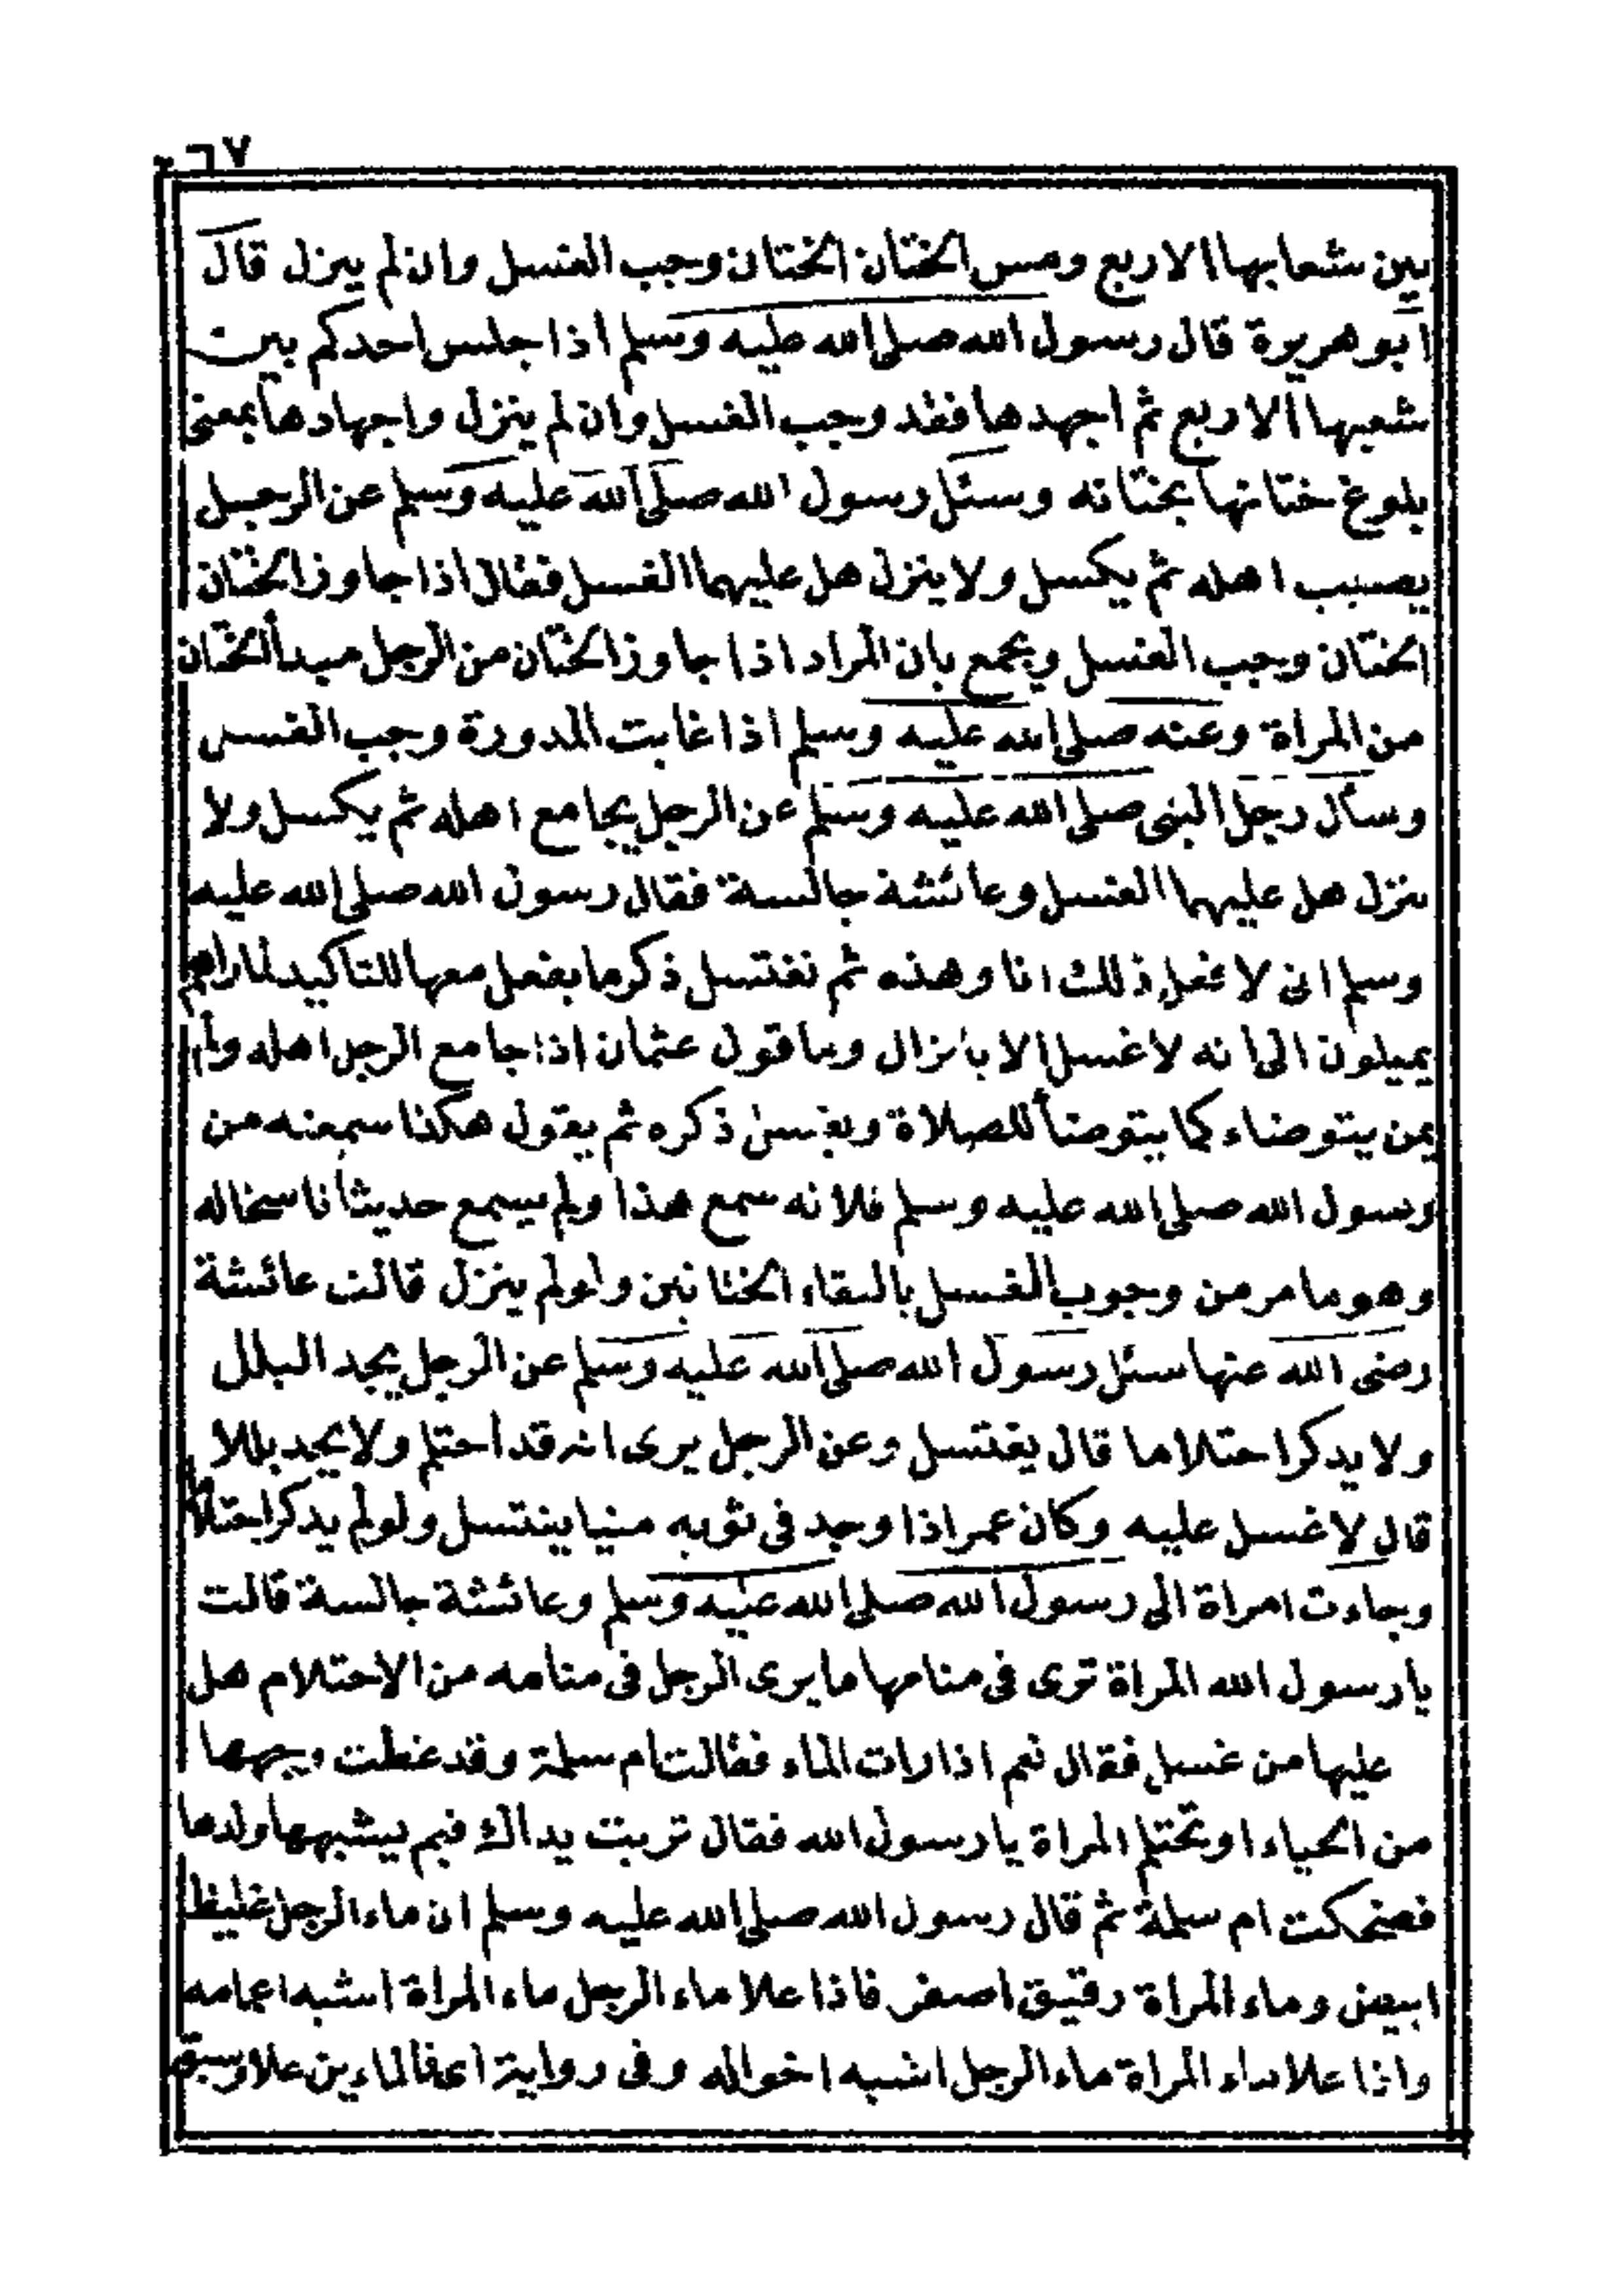 ٦٧
بين شعابها الاربع ومس الختان الختان وجب الغسل وان لم ينزل قال
ابو هريرة قال رسول الله صلى الله عليه وسلم اذا جلس احدكم بين
شعبها الاربع ثم اجهدها فقد وجب الغسل وان لم ينزل واجهادها بمعنى
بلوغ ختانها بختانه وسئل رسول الله صلى الله عليه وسلم عن الرجل
يصيب اهله ثم يكسل ولا ينزل هل عليهما الغسل فقال اذا جاوز الختان
الختان وجب الغسل ويجمع بان المراد اذا جاوز الختان من الرجل مبدأ الختان
من المراة وعنه صلى الله عليه وسلم اذا غابت المدورة وجب الغسل
وسأل رجل النبى صلى الله عليه وسلم عن الرجل يجامع اهله ثم يكسل ولا
ينزل هل عليهما الغسل وعائشة جالسة فقال رسول الله صلى الله عليه
وسلم انى لا فعل ذلك انا وهذه ثم نغتسل ذكر ما يفعل معها للتاكيد لما راهم
يميلون الى انه لا غسل الا بانزال وما قول عثمان اذا جامع الرجل اهله ولم
يمن يتوضاء كما يتوضأ للصلاة ويغسل ذكره ثم يقول هكذا سمعته من
رسول الله صلى الله عليه وسلم فلانه سمع هذا ولم يسمع حديثا ناسخا له
وهو ما مر من وجوب الغسل بالتقاء الختانين ولو لم ينزل قالت عائشة
رضى الله عنها سئل رسول الله صلى الله عليه وسلم عن الرجل يجد البلل
ولا يذكر احتلاما قال يغتسل وعن الرجل يرى انه قد احتلم ولا يجد بللا
قال لا غسل عليه وكان عمر اذا وجد فى ثوبه منيا يغتسل ولو لم يذكر احتلاما
وجاءت امراة الى رسول الله صلى الله عليه وسلم وعائشة جالسة قالت
يا رسول الله المراة ترى فى منامها ما يرى الرجل فى منامه من الاحتلام هل
عليها من غسل فقال نعم اذا رات الماء فقالت ام سلمة وقد غطت وجهها
من الحياء او تحتلم المراة يا رسول الله فقال تربت يداك فبم يشبهها ولدها
فضحكت ام سلمة ثم قال رسول الله صلى الله عليه وسلم ان ماء الرجل غليظ
ابيض وماء المراة رقيق اصفر فاذا علا ماء الرجل ماء المراة اشبه اعمامه
واذا علا ماء المراة ماء الرجل اشبه اخواله وفى رواية اى الماءين علا وسبق